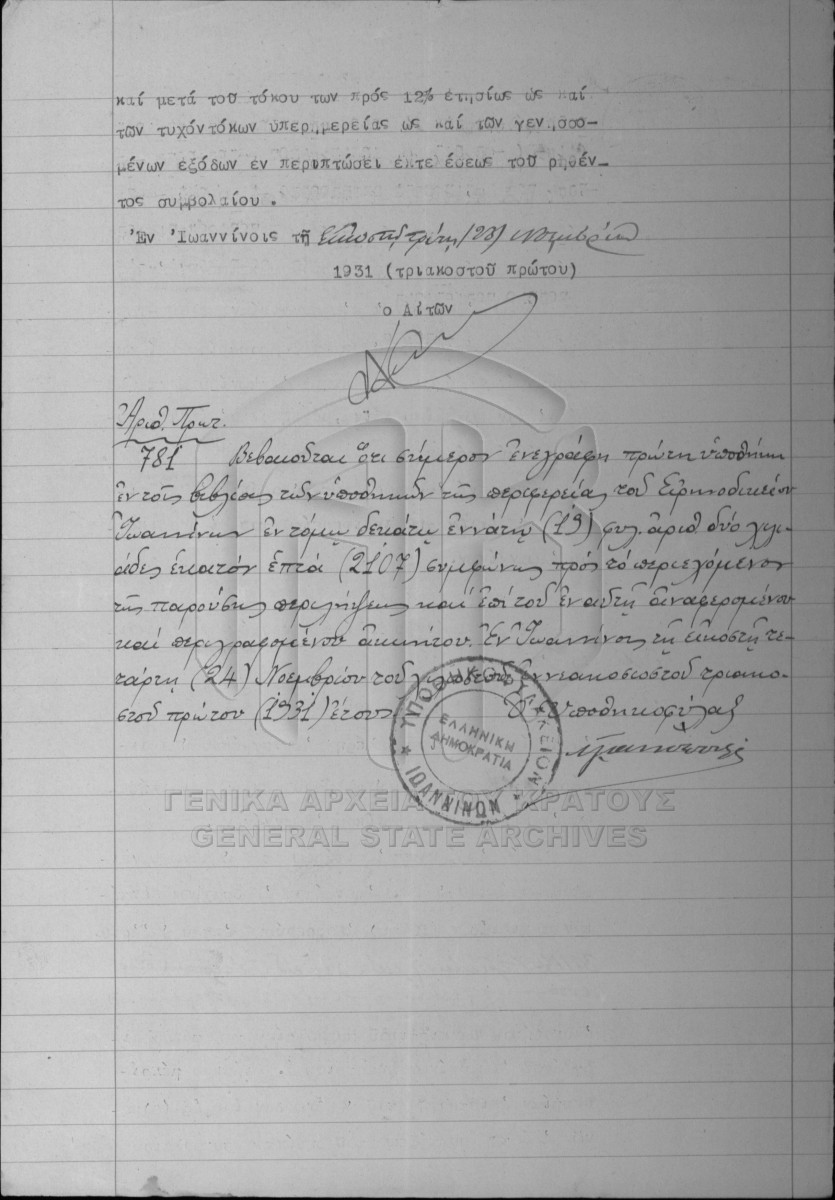 καί μετά τοῦ τόκου των πρός 12% ἐτησίως ὡς καί
τῶν τυχόντόκων ὑπερημερείας ὡς καί τῶν γενησο-
μένων ἐξόδων ἐν περιπτώσει ἐκτελέσεως τοῦ ρηθέν-
τος συμβολαίου .
Ἐν Ἰωαννίνοις τῇ εἰκοστῇ τρίτῃ /23/ Νοεμβρίου
1931 (τριακοστοῦ πρώτου)
ὁ Αἰτῶν
Ἀριθ. Πρωτ.
781 Βεβαιοῦται ὅτι σήμερον ἐνεγράφη πρώτη ὑποθήκη
ἐν τοῖς βιβλίοις τῶν ὑποθηκῶν τῆς περιφερείας τοῦ Εἰρηνοδικείου
Ἰωαννίνων ἐν τόμῳ δεκάτῳ ἐννάτῳ (19) φυλ. ἀριθ. δύο χιλι-
άδες ἑκατόν ἑπτά (2107) συμφώνως πρός τό περιεχόμενον
τῆς παρούσης περιλήψεως καί ἐπί τοῦ ἐν αὐτῇ ἀναφερομένου
καί περιγραφομένου ἀκινήτου. Ἐν Ἰωαννίνοις τῇ εἰκοστῇ τε-
τάρτῃ (24) Νοεμβρίου τοῦ χιλιοστοῦ ἐννεακοσιοστοῦ τριακο-
στοῦ πρώτου (1931) ἔτους Ὁ Ὑποθηκοφύλαξ
ΥΠΟΘΗΚΟΦΥΛΑΚΕΙΟΝ
ΙΩΑΝΝΙΝΩΝ
ΕΛΛΗΝΙΚΗ
ΔΗΜΟΚΡΑΤΙΑ
ΓΕΝΙΚΑ ΑΡΧΕΙΑ ΤΟΥ ΚΡΑΤΟΥΣ
GENERAL STATE ARCHIVES